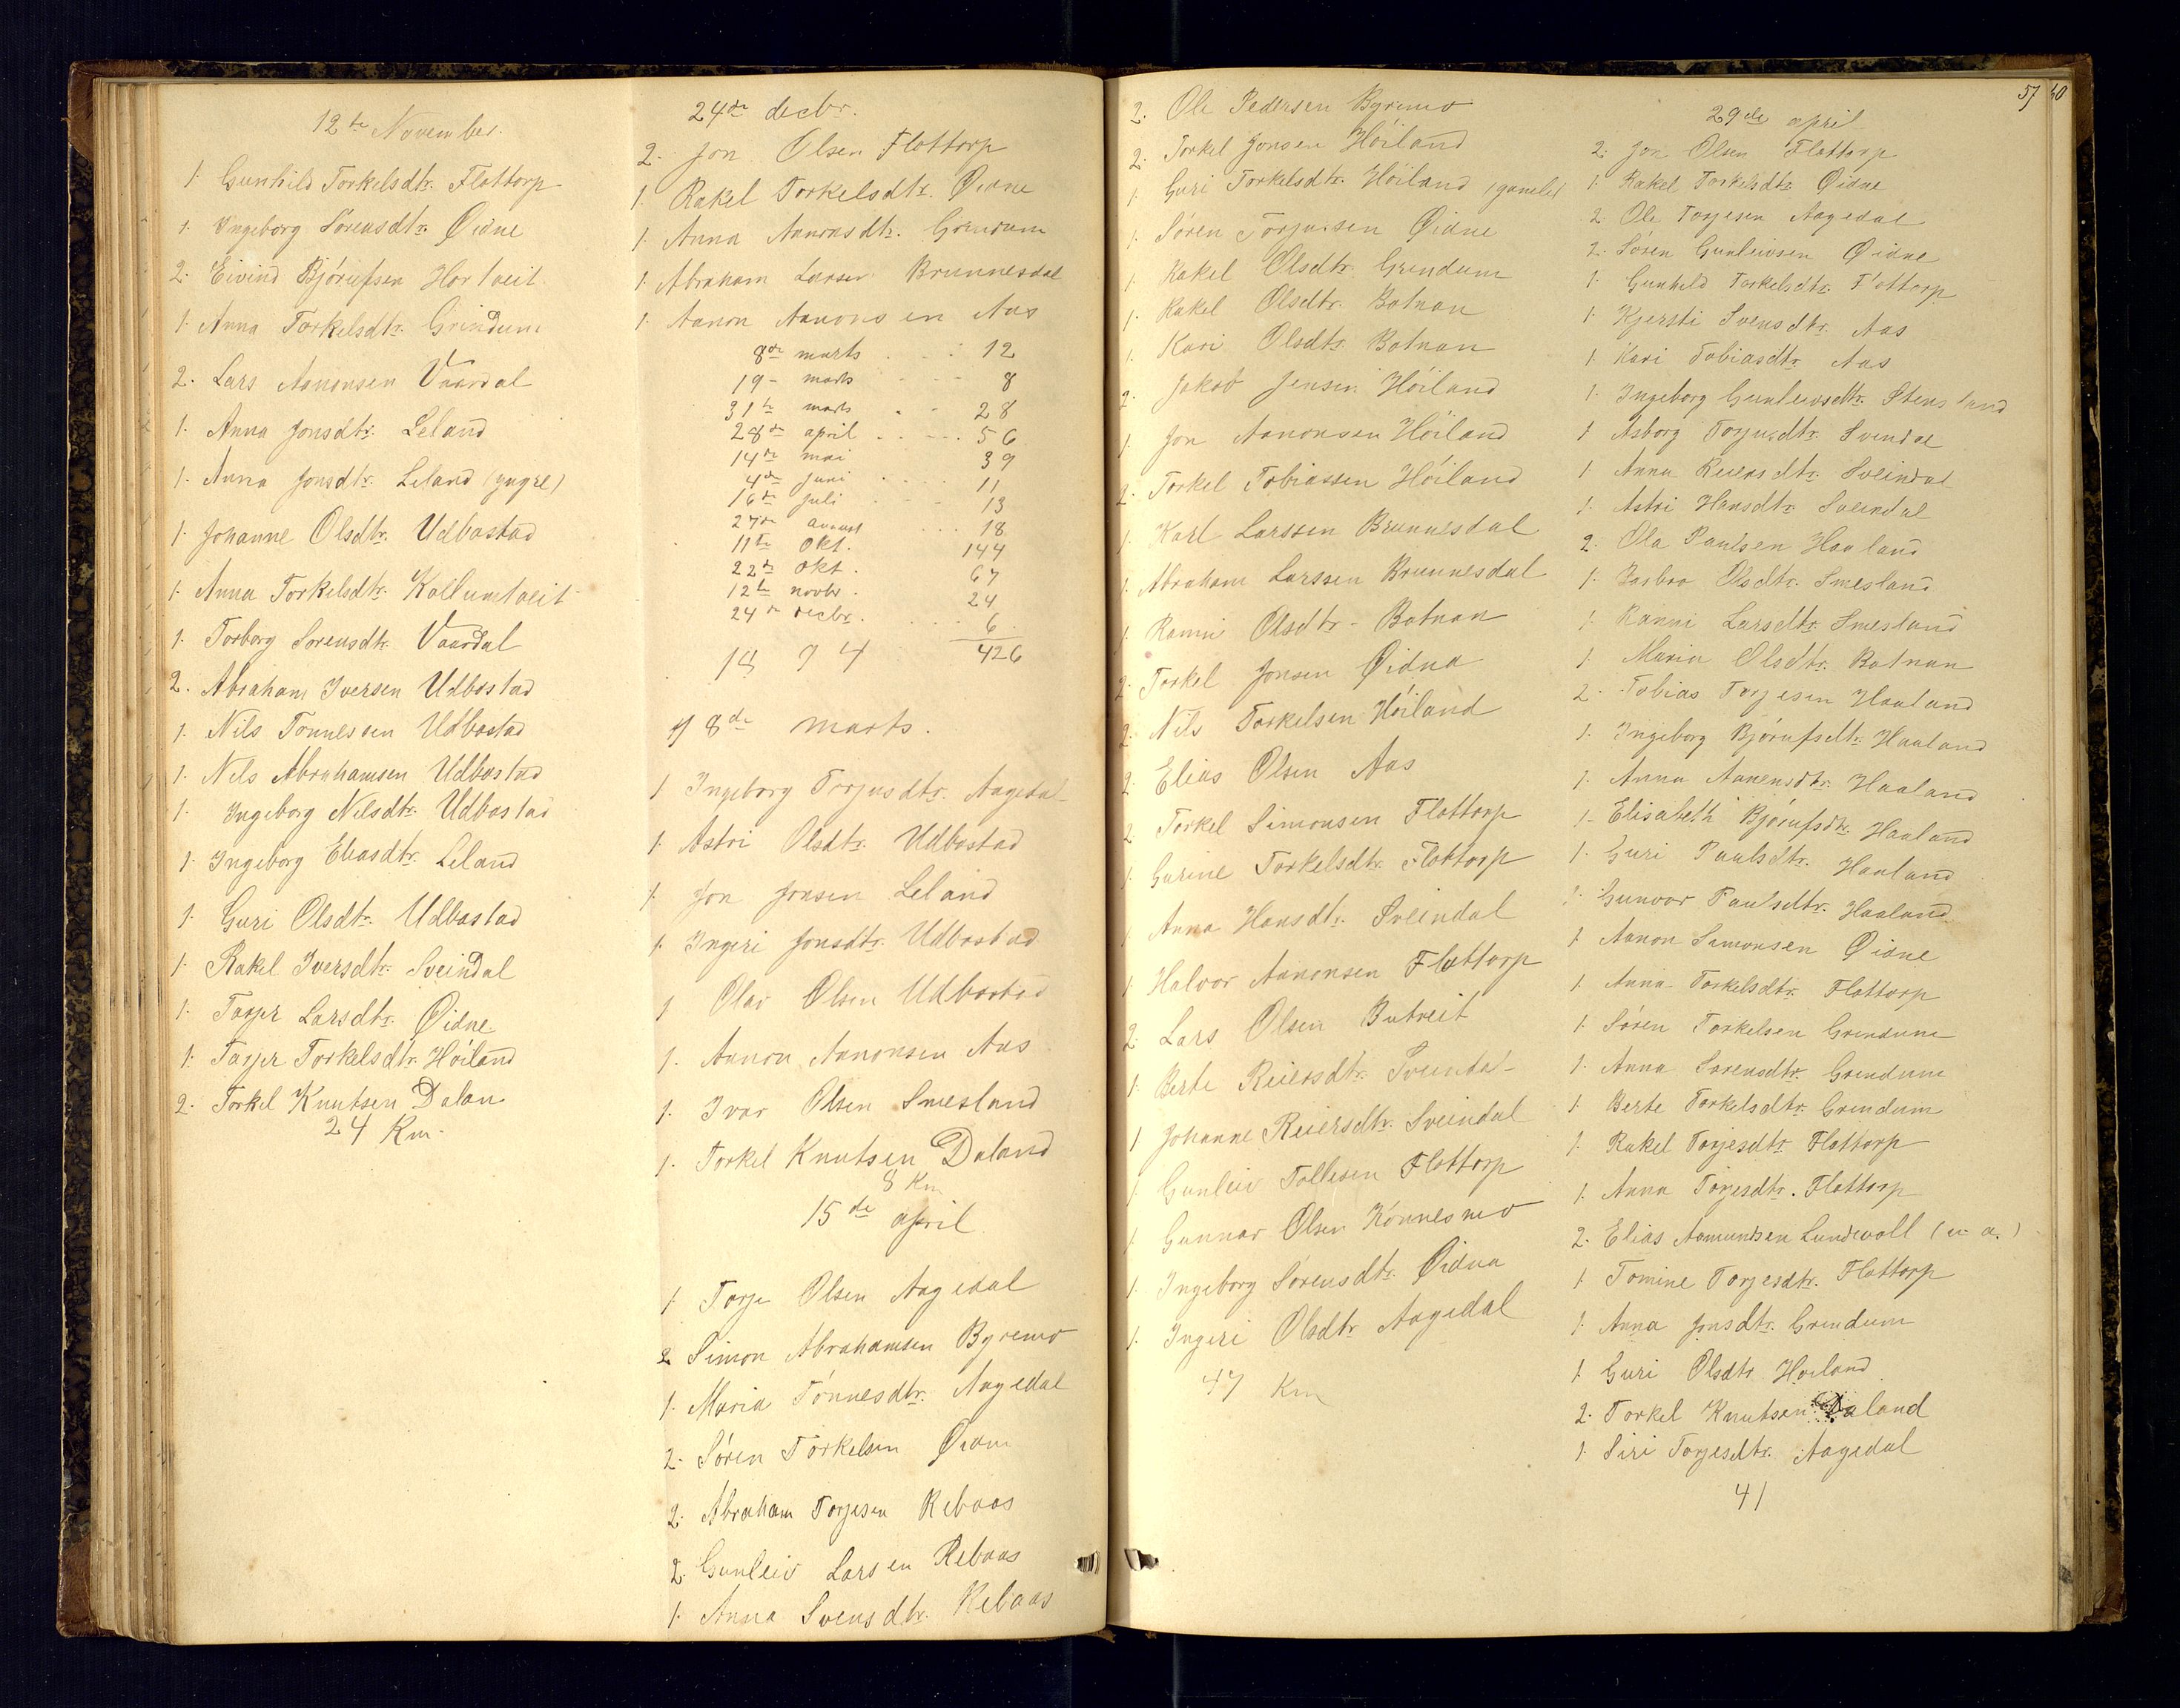 12te November.
1. Gunhild Torkelsdtr. Flottorp
1. Ingeborg Sörensdtr. Øidne
2. Eivind Bjórufsen Hortveit
1. Anna Torkelsdtr. Grindum
2. Lars Aanonsen Vaardal
1. Anna Jonsdtr. Leland
1. Anna Jonsdtr. Leland (yngre)
1. Johanne Olsdtr. Udbostad
1. Anna Torkelsdtr. Kollumtveit
1. Torborg Sorensdtr. Vaardal
2. Abraham Iversen Udbostad
1. Nils Tonnessen Udbostad
1. Nils Abrahamsen Udbostad
1. Ingeborg Nilsdtr. Udbostad
1. Ingeborg Eliasdtr. Leland
1. Guri Olsdtr. Udbostad
1. Rakel Iversdtr. Sveindal
1. Torjer Larsdtr. Øidne
1. Torjer Torkelsdtr. Höiland
2. Torkel Knutsen Dalan
24 Km.
24de decbr.
2. Jon Olsen Flottorp
1. Rakel Torkelsdtr. Øidne
1. Anna Aanonsdtr. Grindum
1. Abraham Larsen Brunnesdal
1. Aanon Aanonsen Aas
8de marts . . . 12
19 - marts - - - 8
31te marts . - 28
28de april . . . . 56
14de mai 39
4de juni . . . . 11
16de juli . - - - 13
27de august . . . 18
11te okt. 144
22de okt. 67
12te novbr. 24
24de decbr. . . . 6
1894 426
8de marts.
1 Ingeborg Torjusdtr. Aagedal
1. Astri Olsdtr. Udbostad
1. Jon Jonsen Leland
1. Ingeri Jonsdtr. Udbostad
1 Olav Olsen Udbostad
1. Aanon Aanonsen Aas
1. Ivar Olsen Smesland
1. Torkel Knutsen Daland
8 Km
15de april
1. Torje Olsen Aagedal
2 Simon Abrahamsen Byremo
1. Maria Tónnesdtr. Aagedal
2. Sóren Torkelsen Øidne
2. Abraham Torjesen Rebaas
2. Gunleiv Larsen Rebaas
1. Anna Svensdtr. Rebaas
57 60
2. Ole Pedersen Byremo
2. Torkel Jonsen Höiland
1. Guri Torkelsdtr. Höiland (gamle)
1. Sören Torjussen Øidne
1 Rakel Olsdtr. Grindum
1. Rakel Olsdtr. Botnan
1. Kari Olsdtr. Botnan
2. Jakob Jensen Höiland
1 Jon Aanonsen Höiland
2. Torkel Tobiassen Höiland
1. Karl Larssen Brunnesdal
1. Abraham Larssen Brunnesdal
1 Ranni Olsdtr - Botnan
2. Torkel Jonsen Øidna
2. Nils Torkelsen Höiland
2. Elias Olsen Aas
2 Torkel Simonsen Flottorp
1. Gurine Torkelsdtr. Flottorp
1 Anna Hansdtr. Sveindal
1 Halvor Aanonsen Flottorp
2. Lars Olsen Butveit
1 Berte Reiersdtr. Sveindal
1 Johanne Reiersdtr. Sveindal
1 Gunleiv Tollesen Flottorp
1 Gunnar Olsen Kónnesmo
1 Ingeborg Sörensdtr. Øidna
1. Ingeri Olsdtr Aagedal
47 Km
29de april
2. Jon Olsen Flottorp
1. Rakel Torkelsdtr. Øidne
2. Ole Torjesen Aagedal
2. Sóren Gunleivsen Øidne
1. Gunhild Torkelsdtr. Flottorp
1. Kjersti Svensdtr. Aas
1. Kari Tobiasdtr. Aas
1. Ingeborg Gunleivsdtr. Stensland
1 Asborg Torjusdtr. Svindal
1. Anna Reiersdtr. Sveindal
1. Astri Hansdtr. Sveindal
2. Ola Paulsen Haaland
1. Barbro Olsdtr. Smesland
1. Ranni Larsdtr. Smesland
1. Maria Olsdtr. Botnan
2. Tobias Torjesen Haaland
1. Ingeborg Bjórufsdtr. Haaland
1. Anna Aanensdtr. Haaland
1- Elisabeth Bjórufsdtr. Haaland
1. Guri Paulsdtr. Haaland
1. Gunvor Paulsdtr. Haaland
1 Aanon Simonsen Øidne
1. Anna Torkelsdtr. Flottorp
1. Sóren Torkelsen Grindum
1. Anna Sorensdtr. Grindum
1. Berte Torkelsdtr. Grindum
1. Rakel Torjesdtr. Flottorp
1. Anna Torjesdtr. Flottorp
2. Elias Aamundsen Lundevoll (v. a.)
1. Tomine Torjesdtr. Flottorp
1. Anna Jonsdtr. Grindum
1. Guri Olsdtr. Hoiland
2. Torkel Knutsen Daland
1. Siri Torjesdtr. Aagedal
41